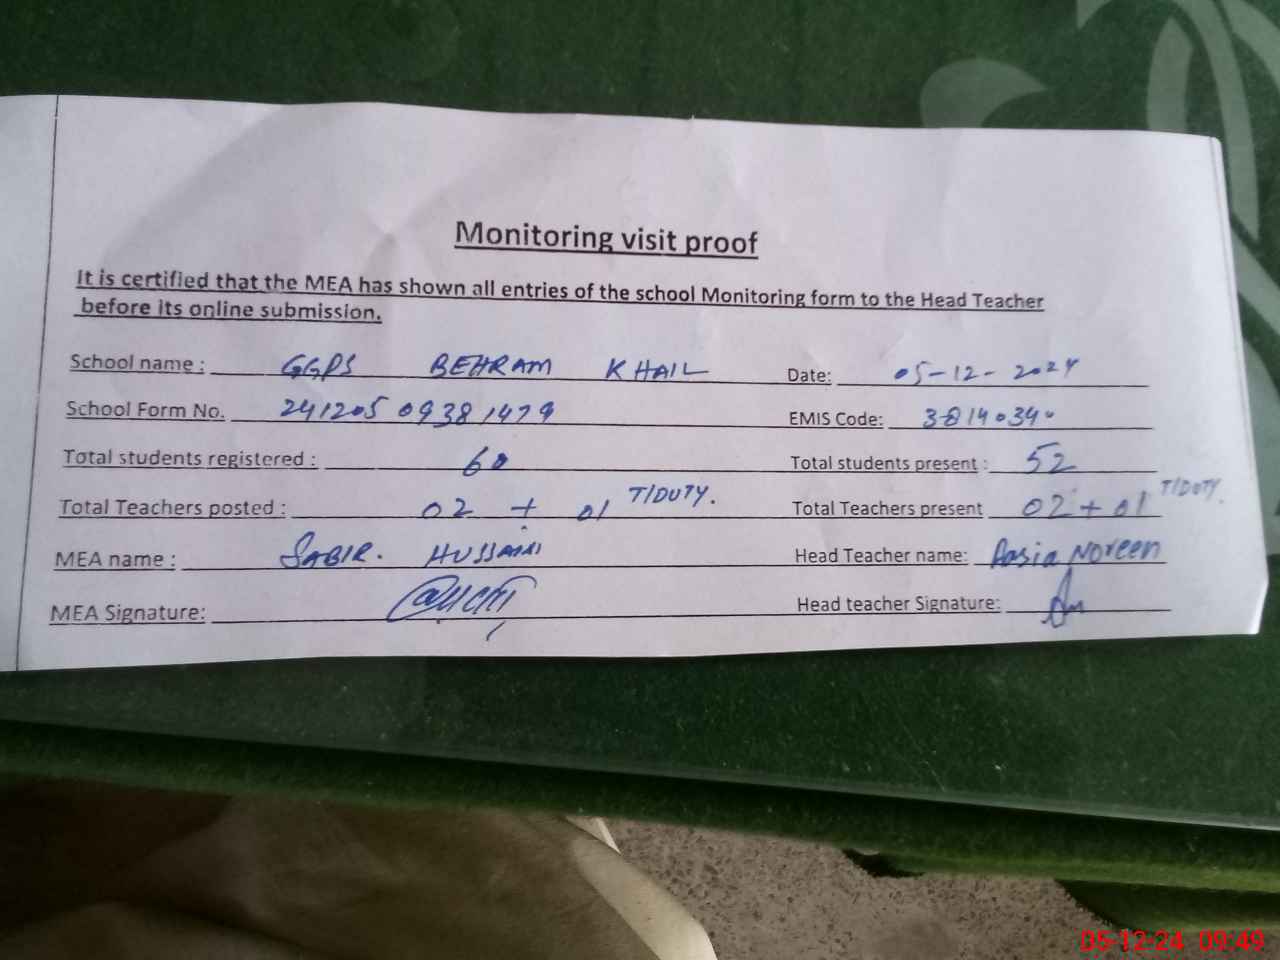 Monitoring visit proof
It is certified that the MEA has shown all entries of the school Monitoring form to the Head Teacher
before its online submission.
School name : GGPS BEHRAM KHAIL Date: 05-12-2024
School Form No. 24120509381479 EMIS Code: 38140340
Total students registered : 60 Total students present : 52
Total Teachers posted : 02 + 01 T/DUTY. Total Teachers present 02 + 01 T/DUTY.
MEA name : SABIR. HUSSAIN Head Teacher name: Aasia Noreen
MEA Signature: Head teacher Signature:
05-12-24 09:49